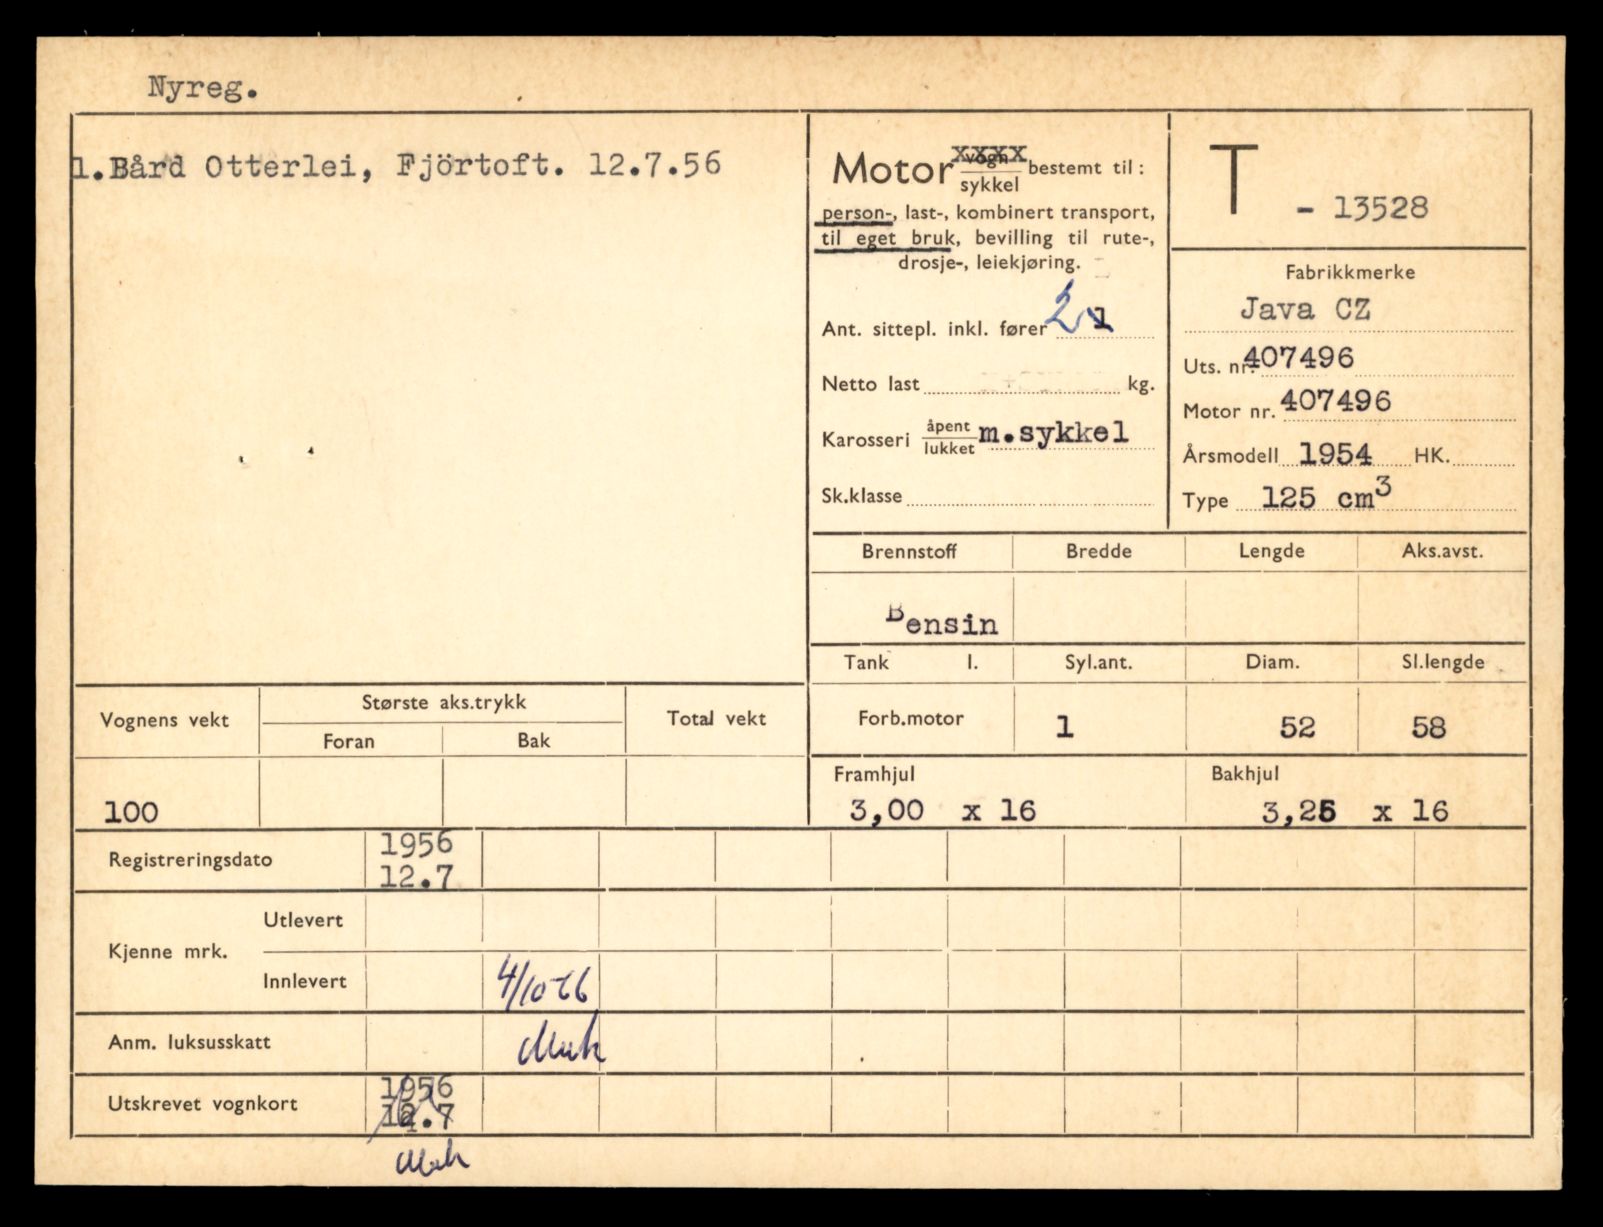 Nyreg.
1.Bård Otterlei, Fjörtoft. 12.7.56
Motor vogn xxxx
sykkel bestemt til:
person-, last-, kombinert transport,
til eget bruk, bevilling til rute-,
drosje-, leiekjøring.
Ant. sittepl. inkl. fører 2 1
Netto last kg.
Karosseri åpent
lukket m.sykkel
Sk.klasse
T - 13528
Fabrikkmerke
Java CZ
Uts. nr. 407496
Motor nr. 407496
Årsmodell 1954 HK.
Type 125 cm3
Brennstoff Bredde Lengde Aks.avst.
Bensin
Tank l. Syl.ant. Diam. Sl.lengde
Forb.motor 1 52 58
Framhjul Bakhjul
3,00 x 16 3,25 x 16
Vognens vekt Største aks.trykk Total vekt
Foran Bak
100
Registreringsdato 1956
12.7
Kjenne mrk. Utlevert
Innlevert 4/10-66
Anm. luksusskatt
Utskrevet vognkort 1956
12.7